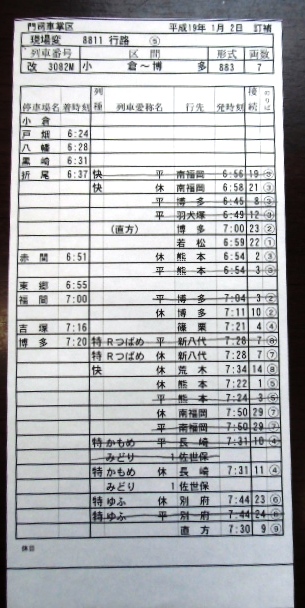 門司車掌区 平成19年 1月 2日 訂補
現場変 8811 行路 ⑤
列車番号 区間 形式 両数
改 3082M 小倉～博多 883 7
停車場名 着時刻 列種 列車愛称名 行先 発時刻 接続 のりば
小倉
戸畑 6:24
八幡 6:28
黒崎 6:31
折尾 6:37 快 平 南福岡 6:56 19
快 休 南福岡 6:58 21 ③
平 博多 6:45 8 ③
平 羽犬塚 6:49 12 ③
(直方) 博多 7:00 23 ②
若松 6:59 22 ①
赤間 6:51 休 熊本 6:54 2 ③
平 熊本 6:54 3 ③
東郷 6:55
福間 7:00 平 博多 7:04 3 ②
休 博多 7:11 10 ②
吉塚 7:16 篠栗 7:21 4 ④
博多 7:20 特 Rつばめ 平 新八代 7:28 7 ⑧
特 Rつばめ 休 新八代 7:28 7 ⑦
快 休 荒木 7:34 14 ⑧
休 熊本 7:22 1 ⑤
平 熊本 7:24 3 ⑤
休 南福岡 7:50 29 ⑦
平 南福岡 7:50 29 ⑦
特 かもめ 平 長崎 7:31 10 ④
みどり 1 佐世保
特 かもめ 休 長崎 7:31 11 ④
みどり 1 佐世保
特 ゆふ 休 別府 7:44 23 ⑥
特 ゆふ 平 別府 7:44 24 ⑥
直方 7:30 9 ⑨